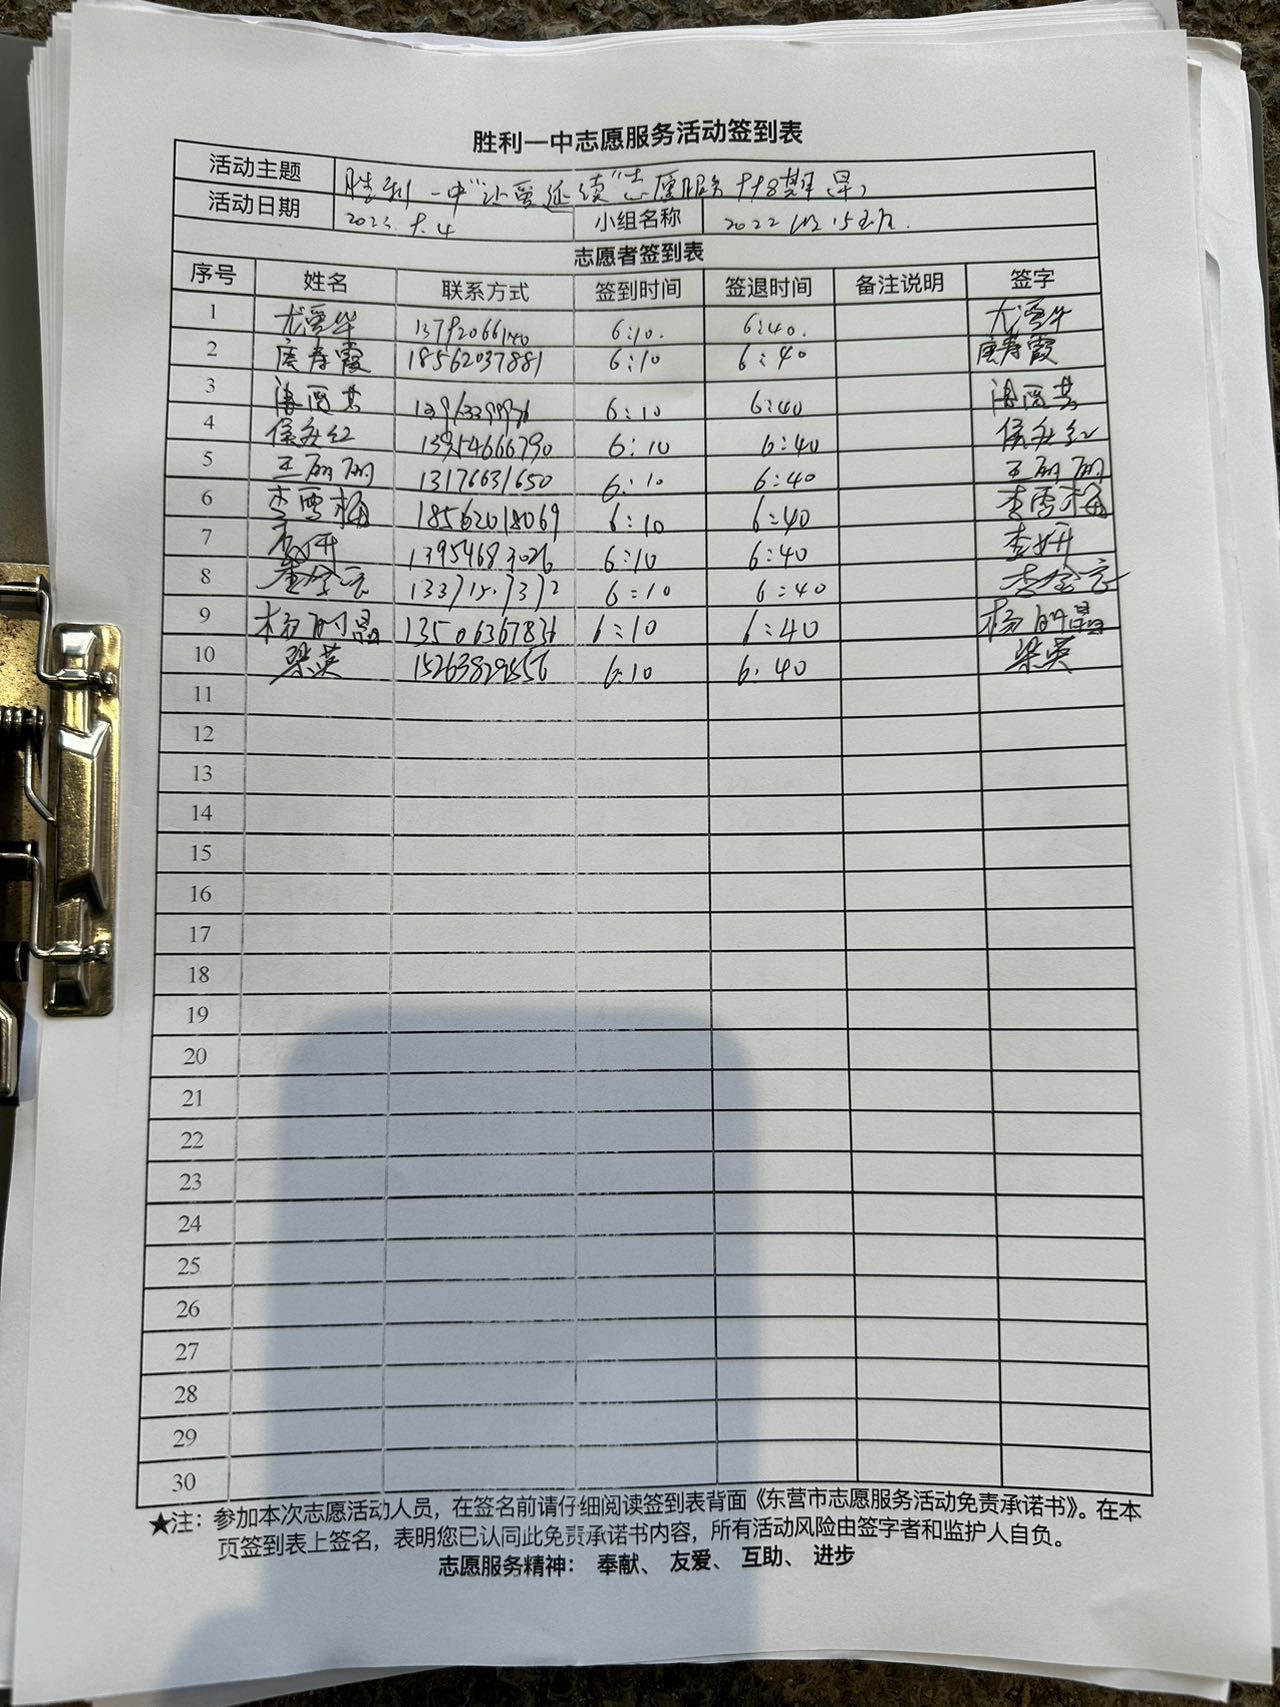 胜利一中志愿服务活动签到表
活动主题 胜利一中“让爱延续”志愿服务
活动日期 2023.9.4 小组名称 2022级.15班.
志愿者签到表
序号 姓名 联系方式 签到时间 签退时间 备注说明 签字
1 尤爱华 6:10. 6:40. 尤爱华
2 18562037881 6:10 6:40
3 6:10 6:40
4 13954666790 6:10 6:40
5 王丽丽 13176631650 6:10 6:40 王丽丽
6 李雪梅 18562018069 6:10 6:40 李雪梅
7 李妍 13954683026 6:10 6:40 李妍
8 6:10 6:40
9 13506367836 6:10 6:40
10 梁英 15263829556 6:10 6:40 梁英
11
12
13
14
15
16
17
18
19
20
21
22
23
24
25
26
27
28
29
30
★注：参加本次志愿活动人员，在签名前请仔细阅读签到表背面《东营市志愿服务活动免责承诺书》。在本
页签到表上签名，表明您已认同此免责承诺书内容，所有活动风险由签字者和监护人自负。
志愿服务精神：奉献、友爱、互助、进步